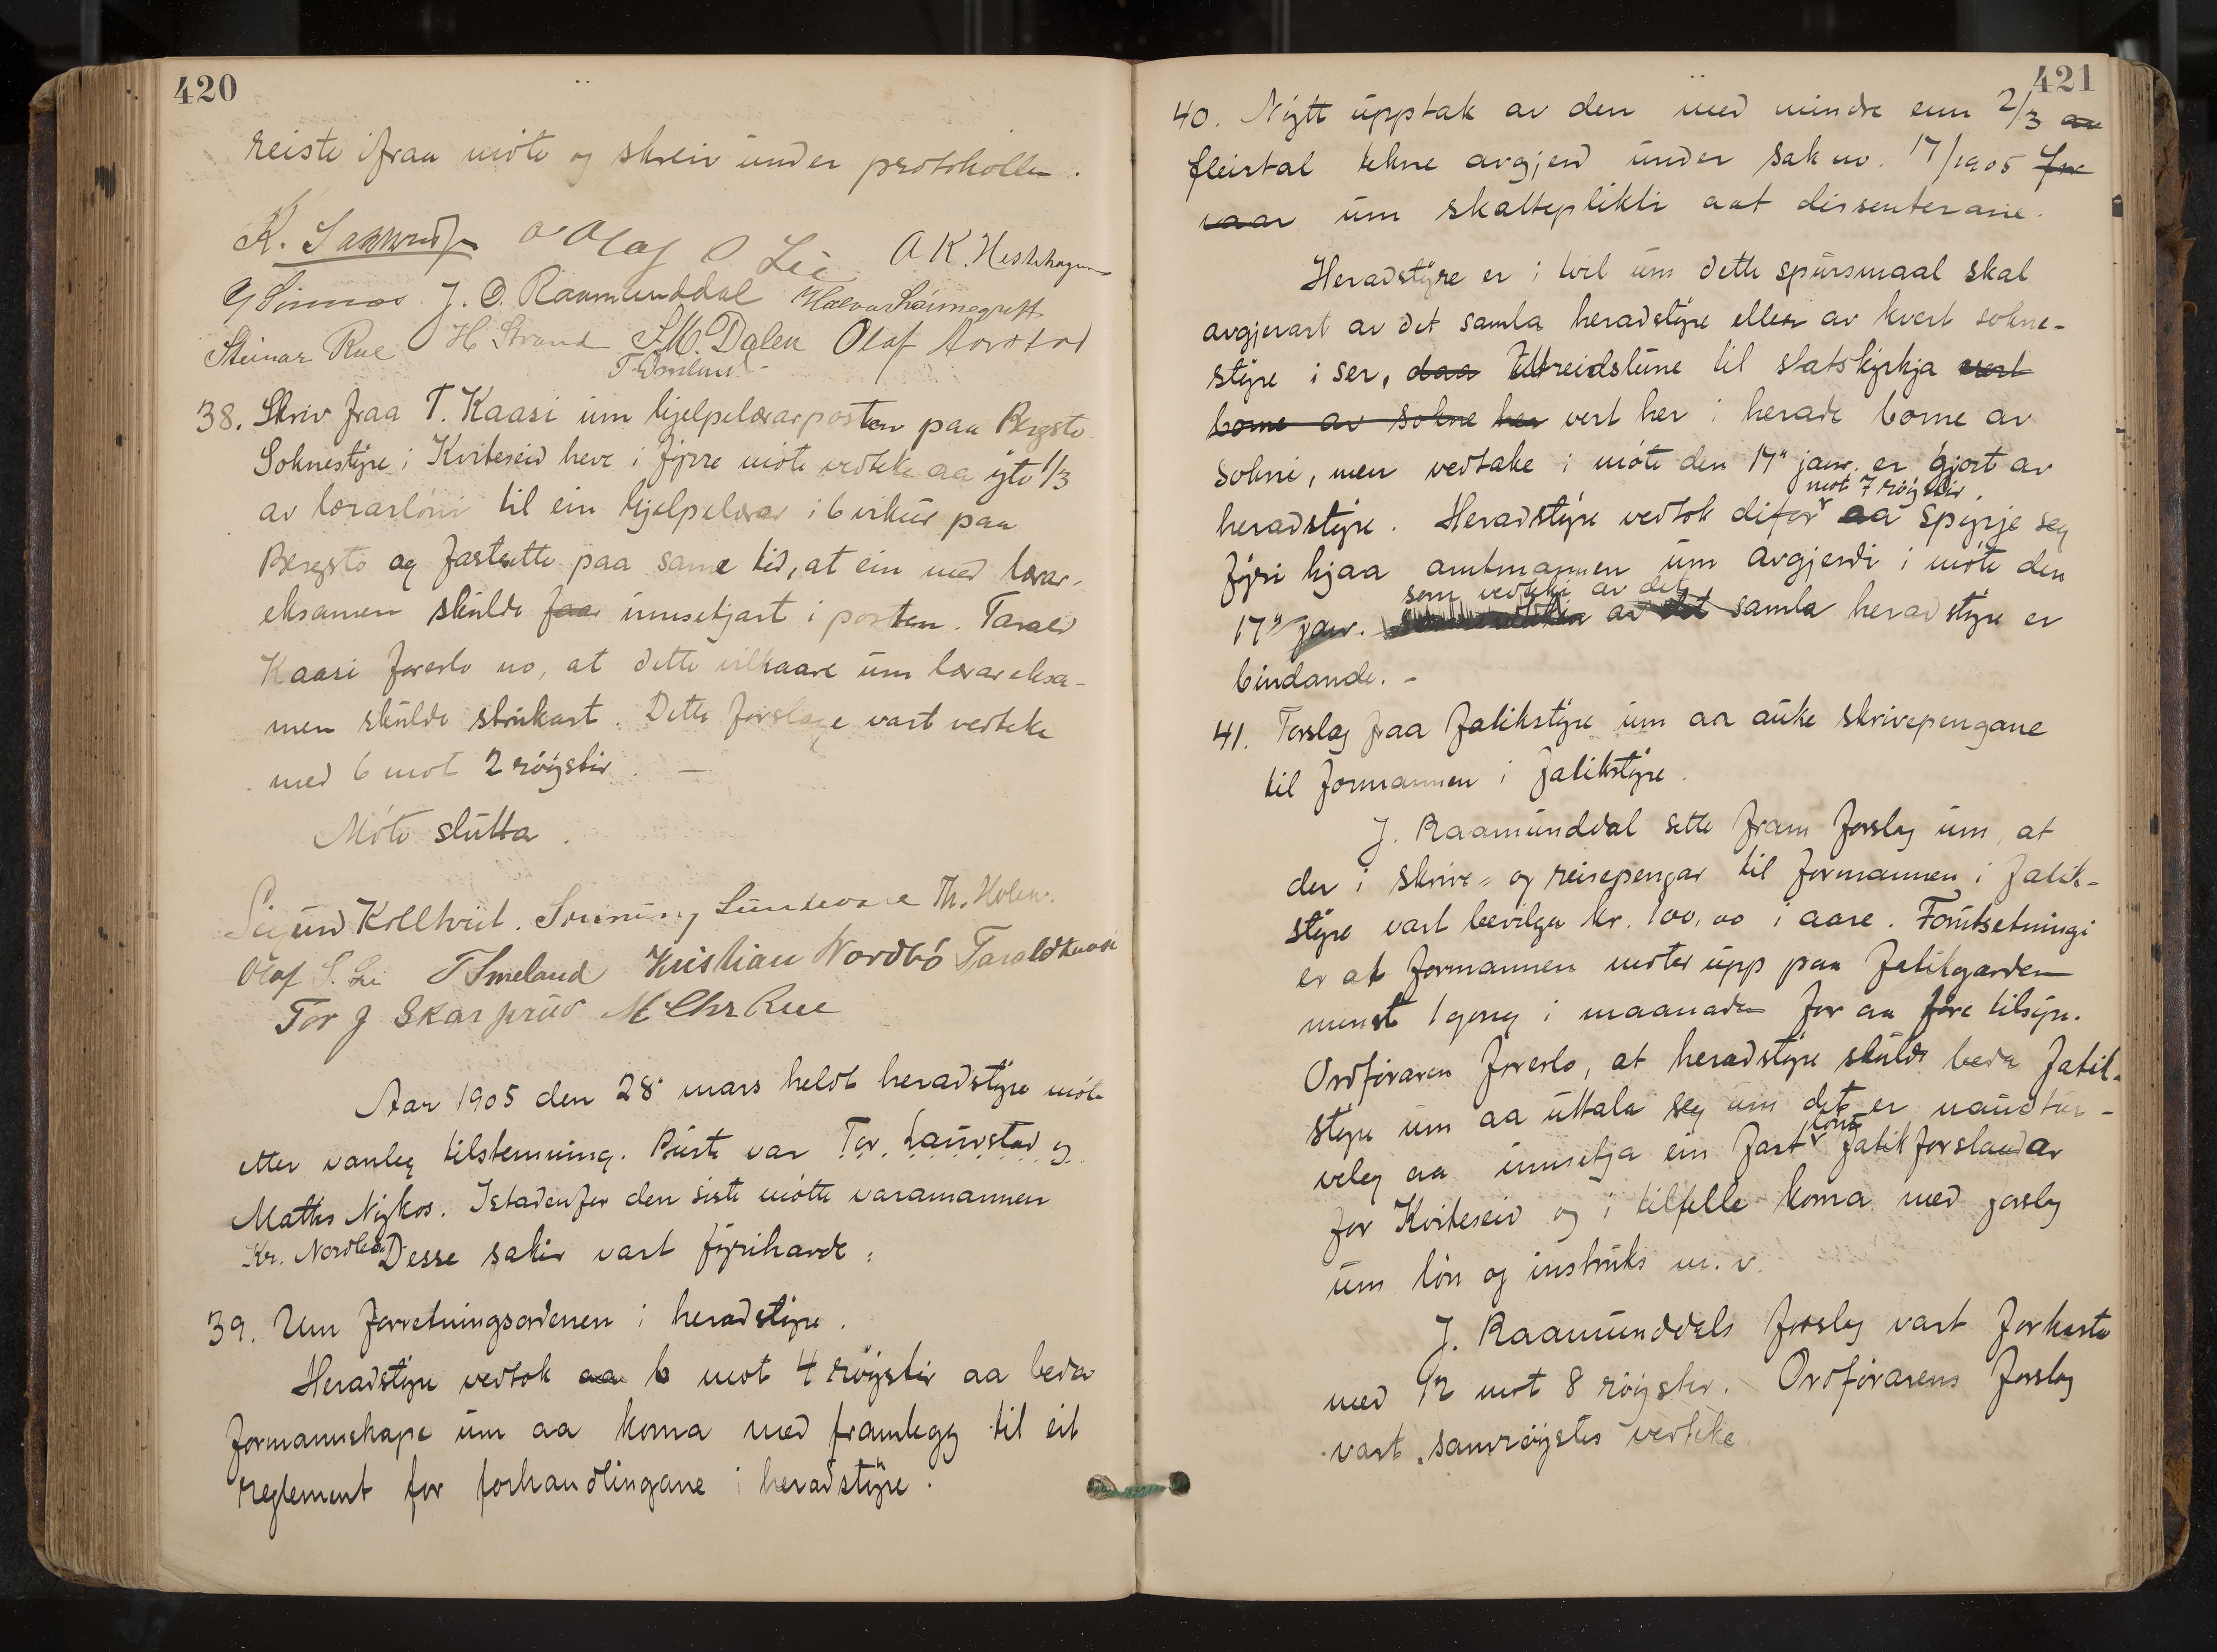 420
reiste ifraa møte og skreiv under protokollen.
Olaf S Lie A K. Heslehagen
J. O. Raamunddal
Steinar Rue H Strand S.M. Dalen Olaf
T Omeland
38. Skriv fraa T. Kaasi um hjelpelærarposten paa Bergstø
Soknestyre i Kviteseid heve i fyrre møte vedteke aa yte 1/3
av lærarløni til ein hjelpelærar i 6 vikur paa
Bergstø og fastsette paa same tid, at ein med lærar-
eksamen skulde faa innsetjast i posten. Tarald
Kaasi foreslo no, at dette vilkaare um lærareksa-
men skulde strukast. Dette forslage vart vedteke
med 6 mot 2 røyster. —
Møte slutta.
Sigurd Kolltveit. Th. Holen.
Olaf S. Lie T Omeland Kristian Nordbø Tarald Kaasi
Tor J Skarprud M Chr Rue
Aar 1905 den 28" mars heldt heradstyre møte
etter vanleg tilstemning. Burte var Tor Lauvstad og
Mathis Nykos. Istadenfor den siste møtte varamannen
Kr. Nordbø. Desse saker vart fyrihavde:
39. Um forretningsordenen i heradstyre.
Heradstyre vedtok aa 6 mot 4 røyster aa beda
formannskape um aa koma med framlegg til eit
reglement for forhandlingane i heradstyre.
421
40. Nytt upptak av den med mindre enn 2/3 av
fleirtal tekne avgjerd under sak no. 17/1905 fre
vaar um skatteplikti aat dissenterane.
Heradstyre er i tvil um dette spursmaal skal
avgjerast av det samla heradstyre eller av kvart sokne-
styre i ser, daa Utreidslune til statskyrkja vert
borne av sokne her vert her i herade borne av
sokni, men vedtake i møte den 17" janr. er gjort av
mot 7 røyster
heradstyre. Heradstyre vedtok difor aa spyrje seg
fyri hjaa amtmannen um avgjerdi i møte den
som vedteki av det
17" janr. av det samla heradstyre er
bindande. -
41. Forslag fraa fatikstyre um aa auke skrivepengane
til formannen i fatikstyre.
J. Raamunddal sette fram forslag um, at
der i skrive- og reisepengar til formannen i fatik-
styre vart bevilga kr. 100,00 i aare. Forutsetningi
er at formannen møter upp paa fatikgarden
minst 1 gong i maanaden for aa føre tilsyn.
Ordføraren foreslo, at heradstyre skulde beda fatik-
styre um aa uttala seg um det er naudtur-
lønt
veleg aa innsetja ein fast fatikforstandar
for Kviteseid og i tilfelle koma med forslag
um løn og instruks m. v.
J. Raamunddals forslag vart forkasta
med 12 mot 8 røyster. Ordførarens forslag
vart samrøystes vedteke.